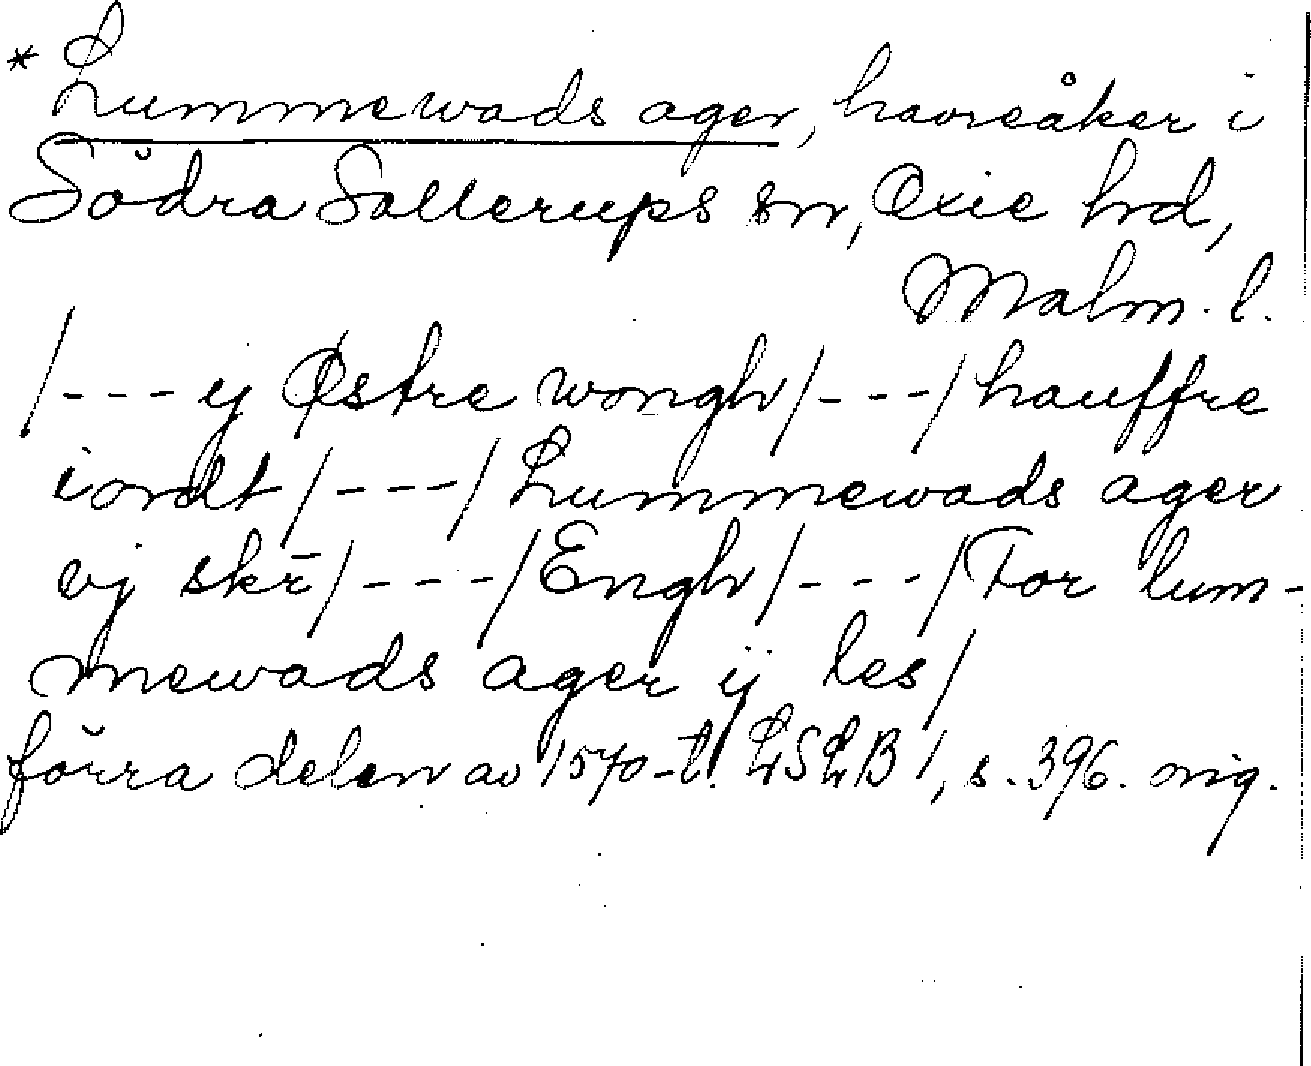 * Lummewads ager, havreåker i
Södra Sallerups sn, Oxie hd,
Malm. l.
/--- y Østre wongh/---/hauffre
iordt/---/Lummewads ager
vj skr̄/---/Engh/---/For lum-
mewads ager ij les/
förra delen av 1570-t. LSLB 1, s. 396. orig.